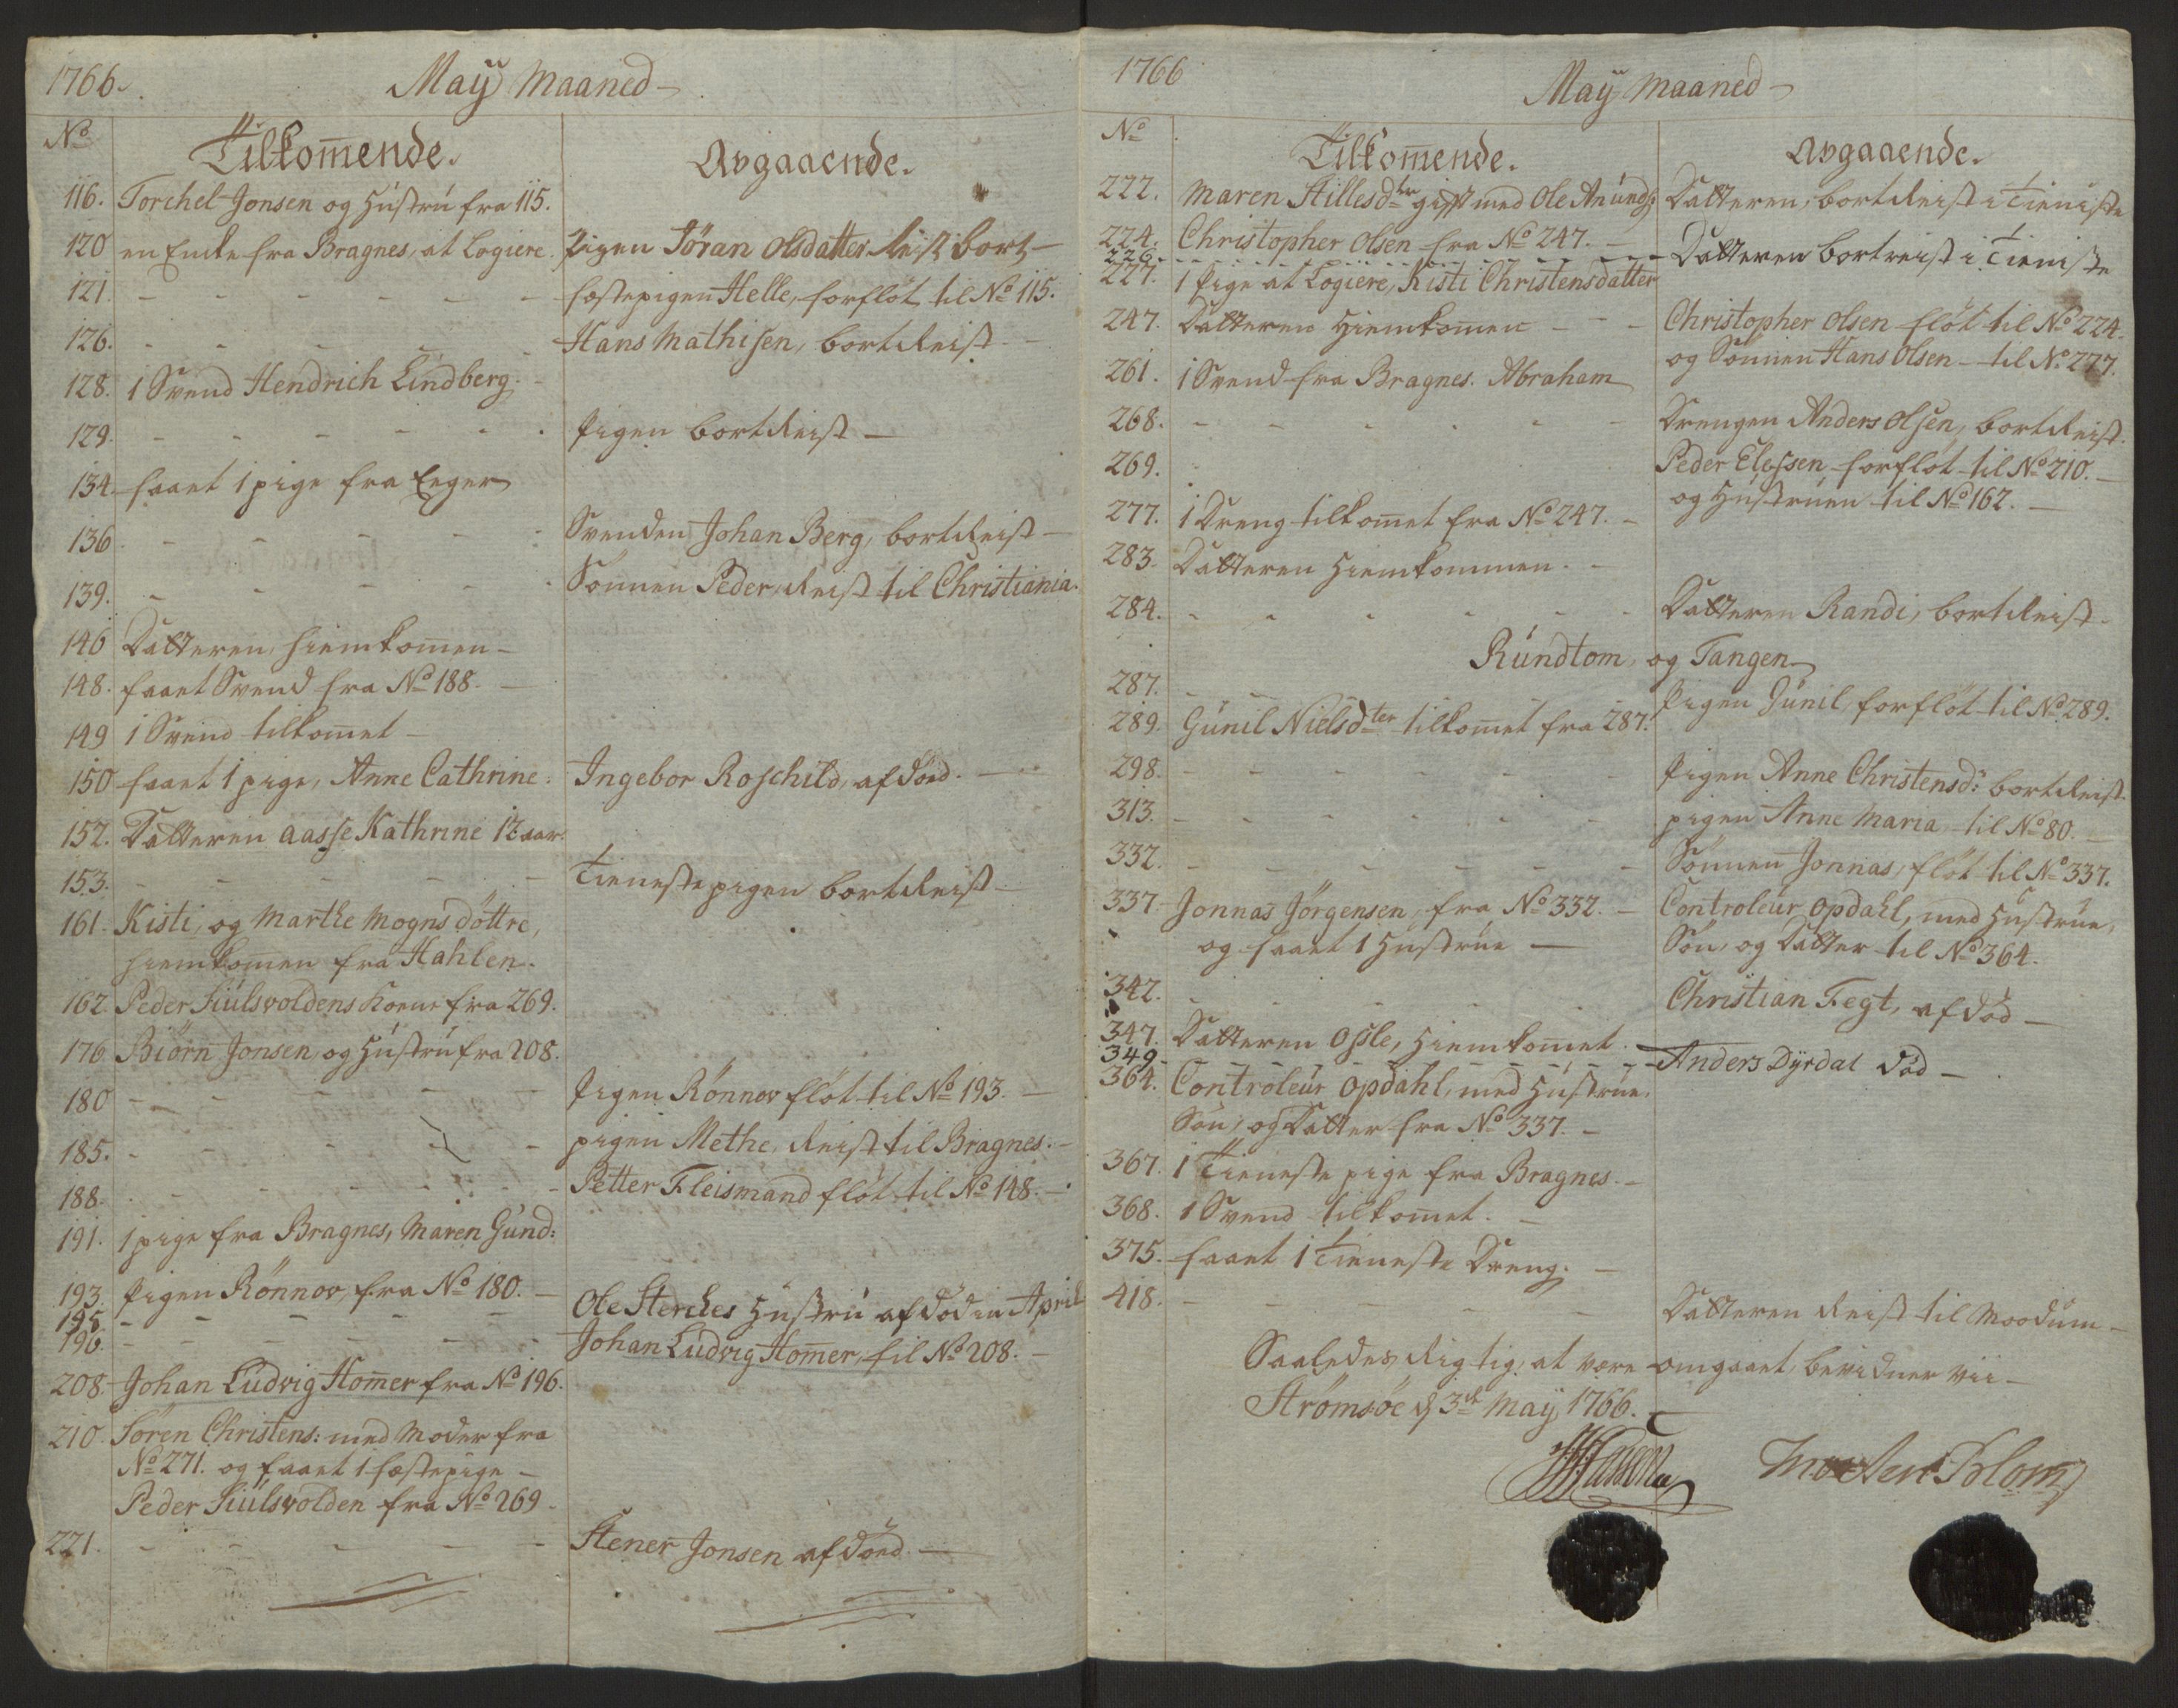 1766.
May Maaned
No
Tilkom̄ende.
Avgaaende.
116. Torchel Jonsen og Hustru fra 115.
120 en Enke fra Bragnes, at Logiere. Pigen Söran Olsdatter reist bort
121. - - - - - fæstepigen Helle, forflöt til No 115.
126. - - - - - Hans Mathisen, bortreist
128. 1 Svend Hendrich Lindberg.
129. - - - - - Pigen bortreist
134. faaet 1 pige fra Eger
136 - - - - - Svenden Johan Berg, bortreist
139. - - - - - Sönnen Peder, reist til Christiania.
146 Datteren, hiemkom̄en
148. faaet Svend fra No 188.
149 1 Svend tilkom̄et
150 faaet 1 pige, Anne Cathrine: Ingebor Roschild, afdöed.
152. Datteren Aasse Kathrine 12 aar.
153. - - - - - Tienestepigen bortreist
161. Kisti, og Marthe Mogns döttre,
hiemkom̄en fra Hahlen.
162 Peder Kiulsvoldens Kone fra 269.
176 Biörn Jonsen, og Hustru fra 208.
180 - - - - - Pigen Rönnov flöt til No 193.
185. - - - - - pigen Methe, Reist til Bragnes.
188. - - - - - Petter Fleismand flöt til No 148.
191. 1 pige fra Bragnes, Maren Gund:
193. Pigen Rönnov, fra No 180.
195. - - - - - Ole Sterches Hustru afdöd in April
196. - - - - - Johan Ludvig Hom̄er, til No 208.
208. Johan Ludvig Hom̄er fra No 196.
210. Sören Christens: med Moder fra
No 271. og faaet 1 fæstepige
Peder Kiulsvolden fra No 269
221. - - - - - Stener Jonsen afdöed.
1766
May Maaned
No
Tilkom̄ende.
Avgaaende.
222. Maren Stillesdter gift med Ole Anunds: Datteren, bortreist i Tieniste
224. Christopher Olsen fra No 247.
226. - - - - - Datteren bortreist i Tieniste
227. 1 Pige at Logiere, Kisti Christensdatter
247. Datteren Hiemkom̄en - - Christopher Olsen flöt til No 224.
og Sönnen Hans Olsen til No 277.
261. 1 Svend fra Bragnes. Abraham
268. - - - - - Drengen Anders Olsen, bortreist.
269. Peder Elessen forflöt til No 210.
og Hustruen til No 162.
277. 1 Dreng tilkom̄et fra No 247.
283. Datteren Hiemkommen.
284. - - - - - Datteren Randi, bortreist.
Rundtom, og Tangen
287. - - - - - Pigen Gunil, forflöt til No 289.
289. Gunil Nielsdter tilkom̄et fra 287.
298. - - - - - Pigen Anne Christensd: bortreist.
313. - - - - - pigen Anne Maria, til No 80.
332. - - - - - Sönnen Jonnas, flöt til No 337.
337. Jonnas Jörgensen, fra No 332. Controleur Opdahl, med Hustrue,
og faaet 1 Hustrue Sön, og Datter til No 364.
342. - - - - - Christian Fegt, afdöd
347. Datteren Ossle, Hiemkom̄et.
349. - - - - - Anders Dyrdal död
364. Controleur Opdahl, med Hustrue,
Sön, og Datter fra No 337.
367. 1 Tieneste pige fra Bragnes.
368. 1 Svend tilkom̄et.
375. faaet 1 Tieneste Dreng.
418. - - - - - Datteren Reist til Moodum
Saaledes Rigtig, at være omgaaet, bevidner vii
Strömsöe d 3de May 1766.
Morten Blom